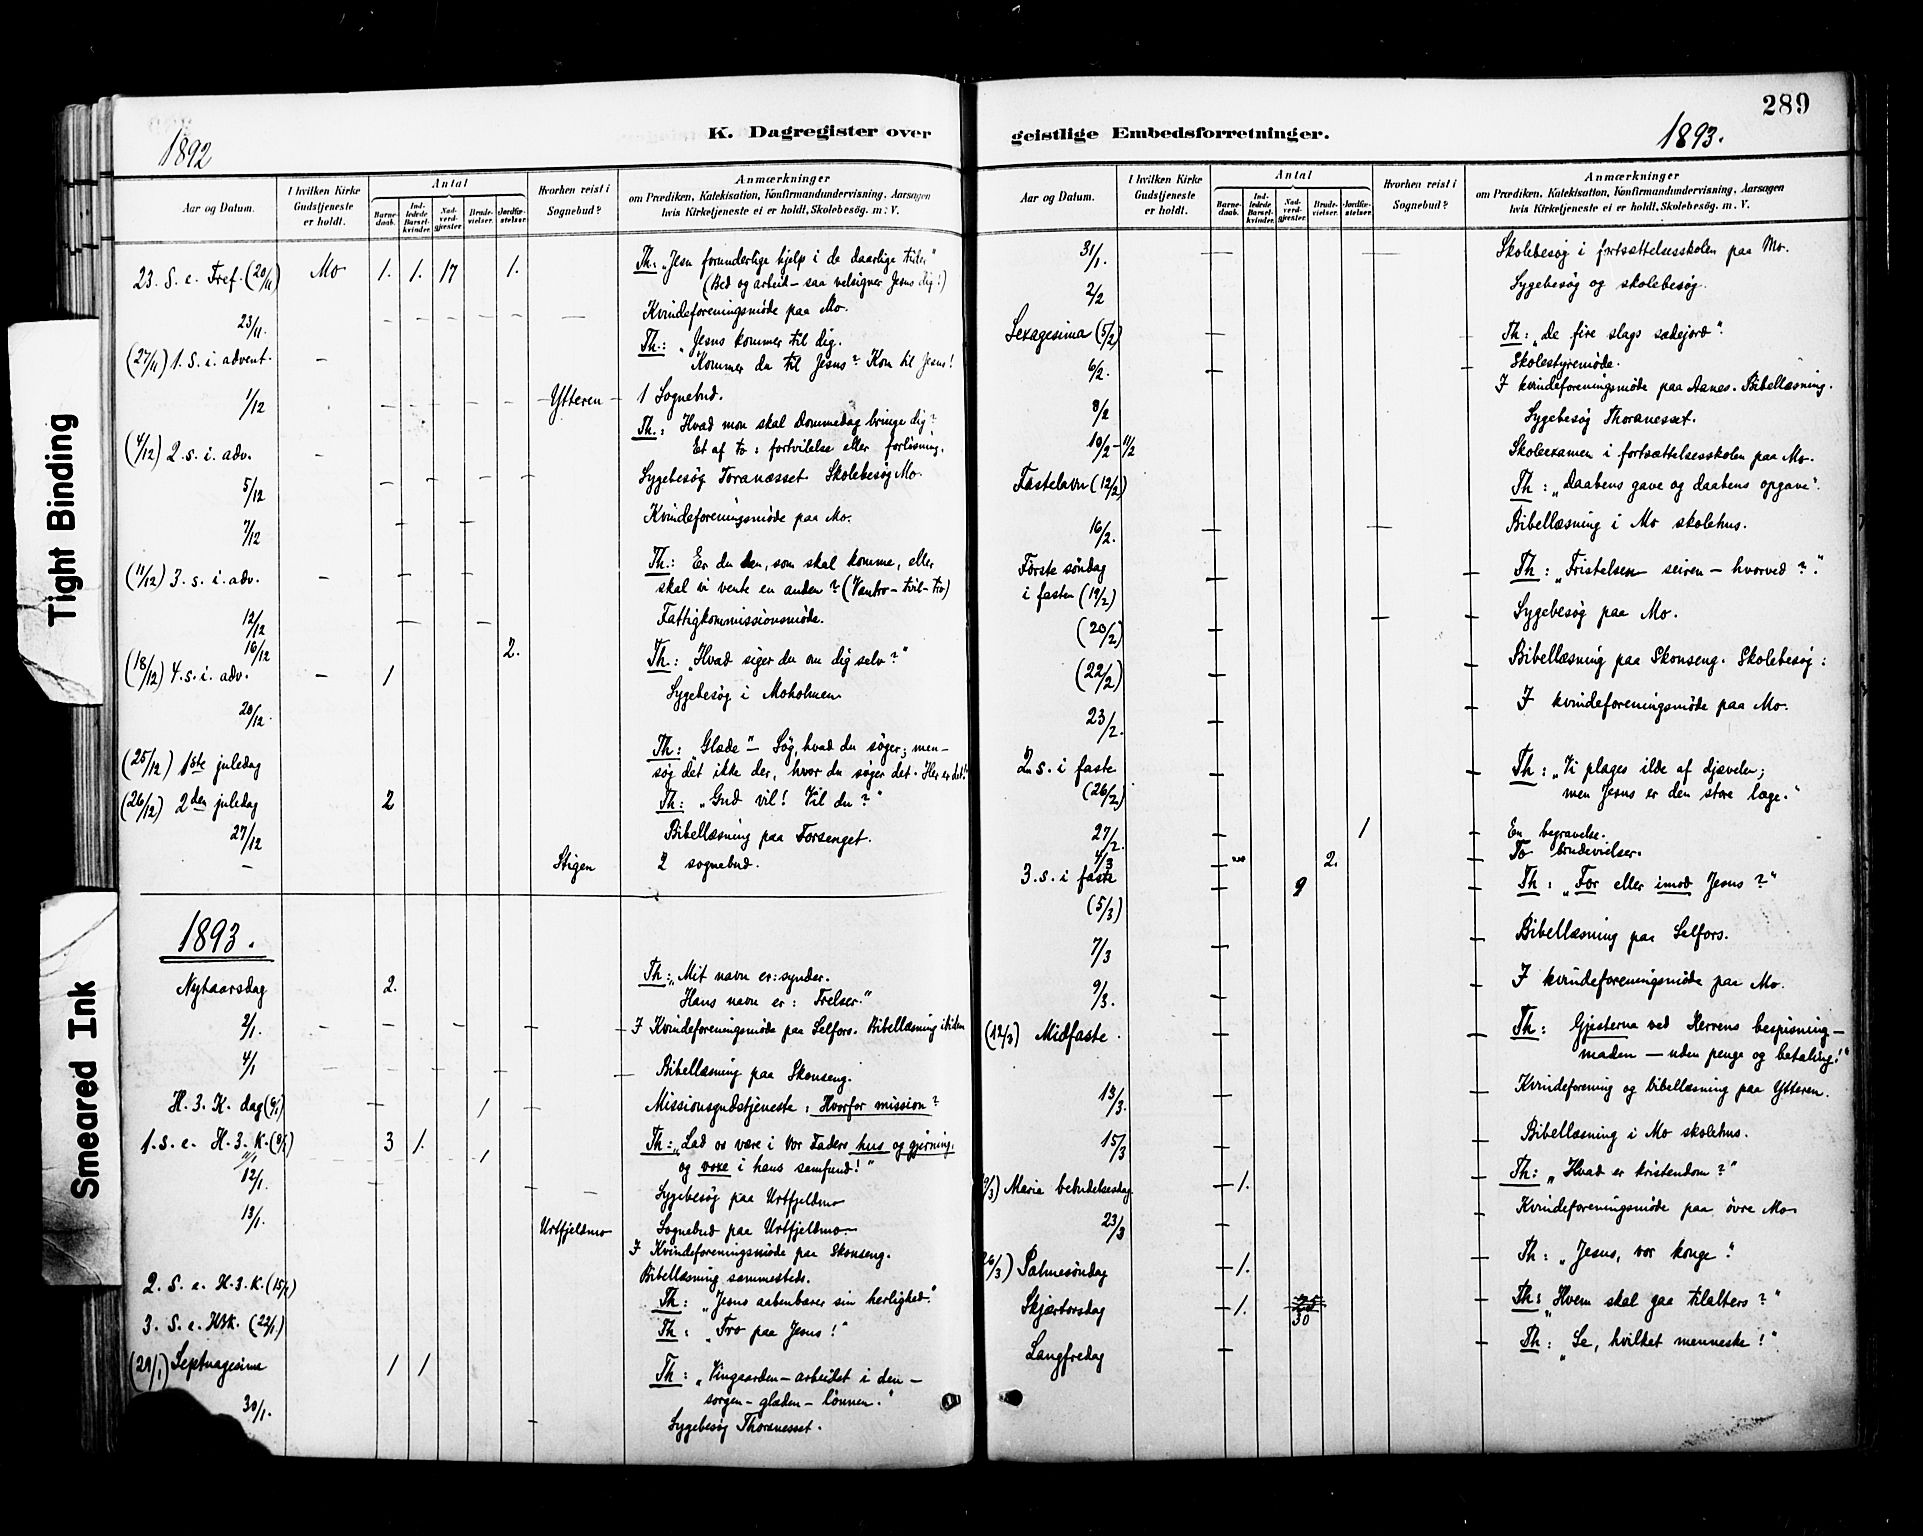 289
K. Dagregister over geistlige Embedsforretninger.
1892
1893.
Tight Binding
Smeared Ink
Aar og Datum.
I hvilken Kirke Gudstjeneste er holdt.
Antal
Barnedaab.
Indledede Barselkvinder.
Nadverdgjester.
Brudevielser.
Jordfæstelser.
Hvorhen reist i Sognebud?
Anmærkninger
om Prædiken, Katekisation, Konfirmandundervisning, Aarsagen
hvis Kirketjeneste ei er holdt, Skolebesøg. m: V.
23. S. e. Tref. (20/11) Mo 1. 1. 17 1. Th: "Jesu forunderlige hjelp i de daarlige tider"
(Bed og arbeid – saa velsigner Jesus dig!)
23/11. Kvindeforeningsmøde paa Mo.
(27/11) 1. S. i. advent. Th.: "Jesus kommer til dig.
Kommer du til Jesus? Kom til Jesus!
1/12 Ytteren 1 Sognebud.
(4/12) 2. s. i. adv. Th.: Hvad mon skal dommedag bringe dig?
Et af to: fortvilelse eller forløsning.
5/12 Sygebesøg Toranæsset. Skolebesøg Mo.
7/12 Kvindeforeningsmøde paa Mo.
(11/12) 3. s. i. adv. Th.: Er du den, som skal komme, eller
skal vi vente en anden? (Vantro – tvil – tro)
12/12 Fattigkommissionsmøde.
16/12 2.
(18/12) 4. s. i. adv. 1 Th.: "Hvad siger du om dig selv?"
20/12. Sygebesøg i Moholmen
(25/12) 1ste juledag Th: Glæde" – Søg, hvad du søger; men –
søg det ikke der, hvor du søger det. Her er det!"
(26/12) 2den juledag 2 Th: "Gud vil! Vil du?"
27/12 Bibellæsning paa Forsenget.
– Stigen 2 sognebud.
1893.
Nytaarsdag 2. Th: "Mit navn er: synder.
Hans navn er: Frelser."
2/1. I Kvindeforeningsmøde paa Selfors. Bibellæsning
4/1 Bibellæsning paa Skonseng.
H. 3. K. dag (6/1) 1 Missionsgudstjeneste: Hvorfor mission?
1. s. e. H. 3. K. (8/1) 3 1. Th: "Lad os være i vor Faders hus og gjerning,
11/1 1 og voxe i hans samfund!"
12/1. Sygebesøg paa Urtfjeldmo
13/1. Urtfjeldmo Sognebud paa Urtfjeldmo
I Kvindeforeningsmøde paa Skonseng.
Bibellæsning sammesteds.
2. S. e. H. 3. K. (15/1) Th: "Jesus aabenbarer sin herlighed."
3. S. e. H3K. (22/1.) Th: "Tro paa Jesus!"
(29/1) Septuagesima 1 1 Th: "Vingaarden – arbeidet i den –
sorgen – glæden – lønnen."
30/1. Sygebesøg Thoranesset.
Aar og Datum.
I hvilken Kirke Gudstjeneste er holdt.
Antal
Barnedaab.
Indledede Barselkvinder.
Nadverdgjester.
Brudevielser.
Jordfæstelser.
Hvorhen reist i Sognebud?
Anmærkninger
om Prædiken, Katekisation, Konfirmandundervisning, Aarsagen
hvis Kirketjeneste ei er holdt, Skolebesøg. m. V.
31/1. Skolebesøg i fortsættelsesskolen paa Mo.
2/2 Sygebesøg og skolebesøg.
Sexagesima (5/2) Th: "De fire slags sædejord".
6/2. Skolestyremøde.
I kvindeforeningsmøde paa Aanes. Bibellæsning.
8/2 Sygebesøg Thoranesset.
10/2 – 11/2 Skoleexamen i fortsættelsesskolen paa Mo.
Fastelavn (12/2) Th: "Daabens gave og daabens opgave".
16/2. Bibellæsning i Mo skolehus.
Første søndag
i fasten (19/2) Th: "Fristelsen seiren – hvorved?".
(20/2) Sygebesøg paa Mo.
(22/2) Bibellæsning paa Skonseng. Skolebesøg:
23/2. I kvindeforeningsmøde paa Mo.
2. s. i faste
(26/2) Th: "Vi plages ilde af djævelen;
men Jesus er den store læge."
27/2. 1 En begravelse.
4/3 2. To brudevielser.
3. s. i faste
(5/3) 9 Th: "For eller imod Jesus?"
7/3 Bibellæsning paa Selfors.
9/3. I kvindeforeningsmøde paa Mo.
(12/3) Midfaste. Th: Gjesterne ved Herrens bespisning –
maden – uden penge og betaling!"
13/3. Kvindeforening og bibellæsning paa Ytteren.
15/3 Bibellæsning i Mo skolehus.
Maria bebudelsesdag 1. Th: "Hvad er kristendom?"
23/3 Kvindeforeningsmøde paa øvre Mo
26/3) Palmesøndag 1. Th: "Jesus, vor konge."
Skjærtorsdag 1. 30 Th: "Hvem skal gaa tilalters?"
Langfredag Th: "Se, hvilket menneske!"